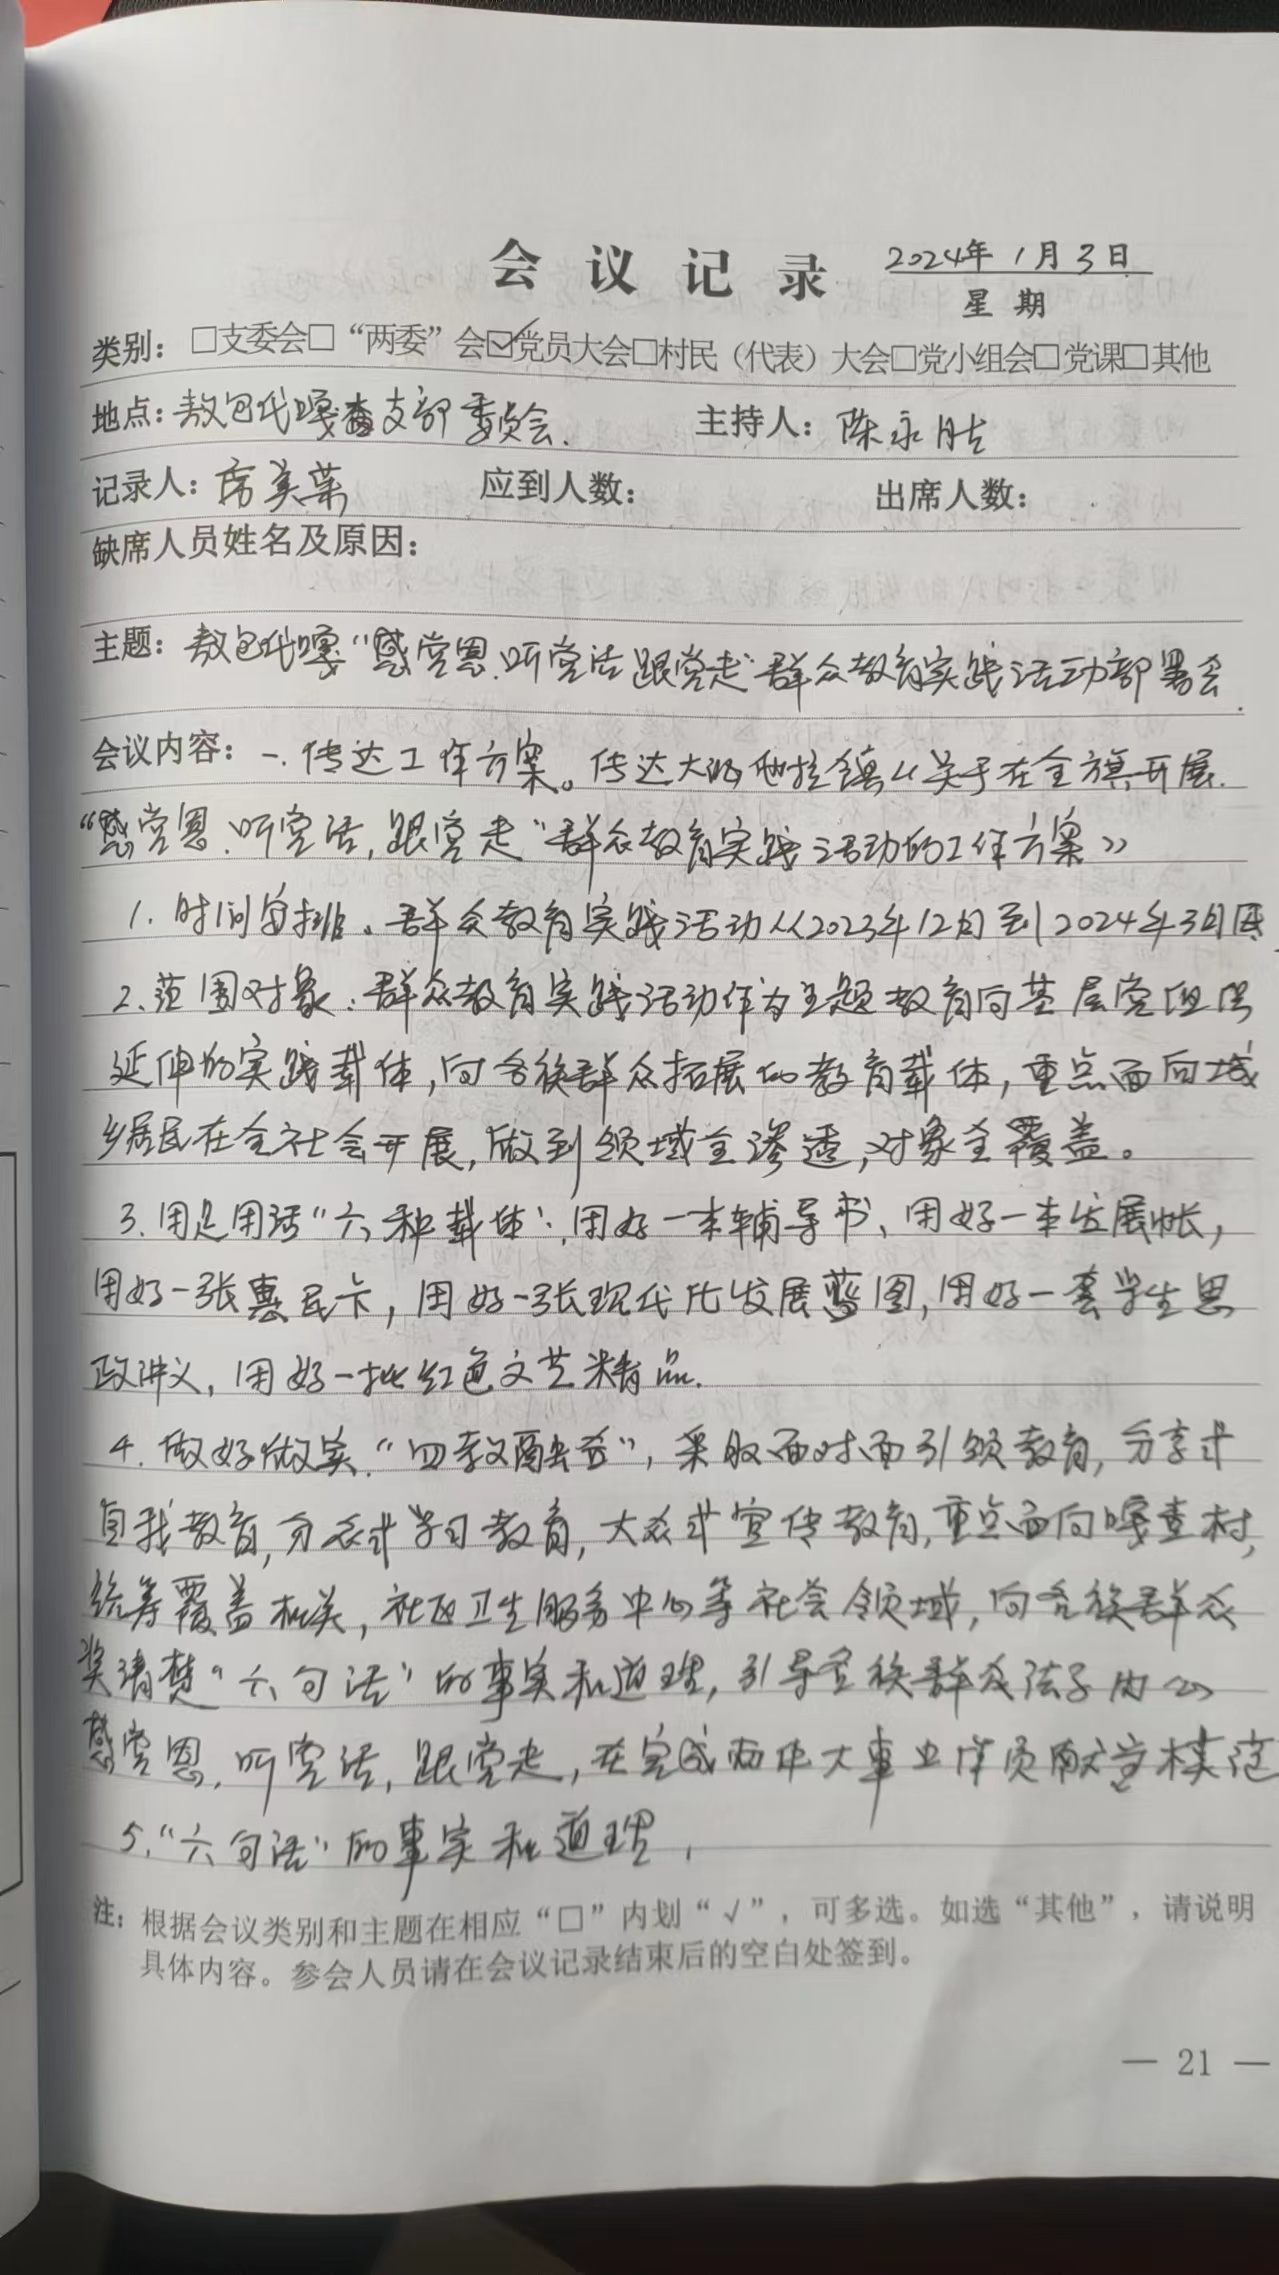 会议记录 2024年1月3日
星期
类别：□支委会□“两委”会☑党员大会□村民（代表）大会□党小组会□党课□其他
地点：敖包代嘎查支部委员会. 主持人：陈永胜
记录人：席美荣 应到人数： 出席人数：
缺席人员姓名及原因：
主题：敖包代嘎“感党恩.听党话跟党走”群众教育实践活动部署会.
会议内容：一.传达工作方案。传达大沁他拉镇《关于在全旗开展.
“感党恩.听党话,跟党走”群众教育实践活动的工作方案》
1.时间安排。群众教育实践活动从2023年12月到2024年3月底
2.范围对象：群众教育实践活动作为主题教育向基层党组织
延伸的实践载体,向各族群众拓展的教育载体,重点面向城
乡居民在全社会开展,做到领域全渗透,对象全覆盖。
3.用足用活“六种载体”：用好一本辅导书、用好一本发展帐,
用好一张惠民卡,用好一张现代化发展蓝图,用好一套学生思
政讲义,用好一批红色文艺精品.
4.做好做实.“四教融合”,采取面对面引领教育,分享式
自我教育,分众式学习教育,大众式宣传教育,重点面向嘎查村,
统筹覆盖机关,社区卫生服务中心等社会领域,向各族群众
讲清楚“六句话”的事实和道理,引导各族群众发自内心
感党恩,听党话,跟党走,在完成两件大事上作贡献当模范
5.“六句话”的事实和道理,
注：根据会议类别和主题在相应“□”内划“√”，可多选。如选“其他”，请说明
具体内容。参会人员请在会议记录结束后的空白处签到。
— 21 —